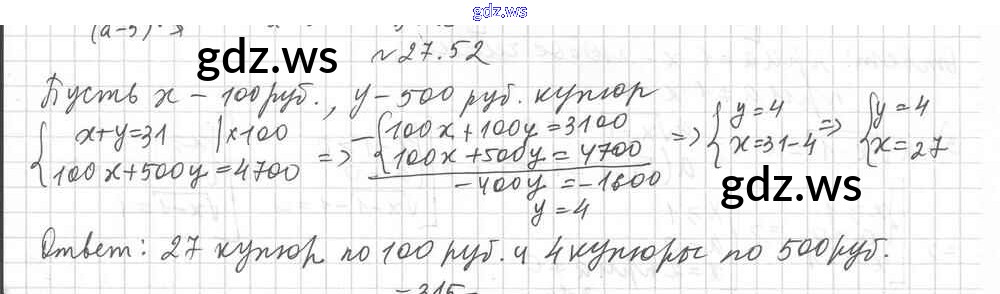 gdz.ws
(a-5)
№27.52
gdz.ws
Пусть x - 100 руб., y - 500 руб. купюр
{ x+y=31 |×100
100x+500y=4700 => - { 100x+100y=3100
100x+500y=4700 => { y=4
x=31-4 => { y=4
x=27
-400y=-1600
y=4
gdz.ws
Ответ: 27 купюр по 100 руб. и 4 купюры по 500 руб.